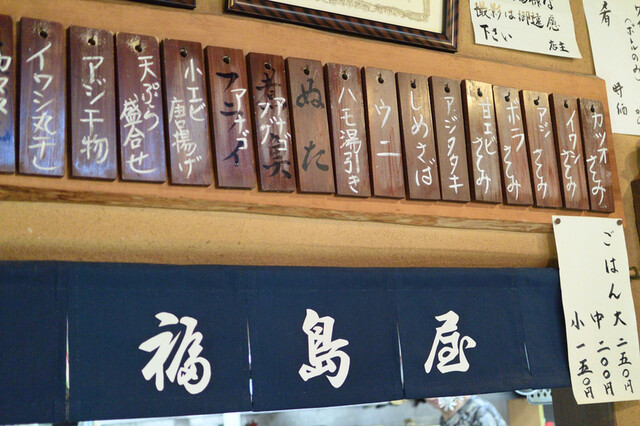 カツオさしみ
イワシさしみ
アジさしみ
ボラさしみ
甘エビさしみ
アジタタキ
しめさば
ウニ
ハモ湯引き
ぬた
アナゴ
フライ
小エビ
唐揚げ
天ぷら
盛合せ
アジ干物
イワシ丸干し
撮影は御遠慮
下さい
店主
肴
時価
福島屋
ごはん大二五〇円
中二〇〇円
小一五〇円